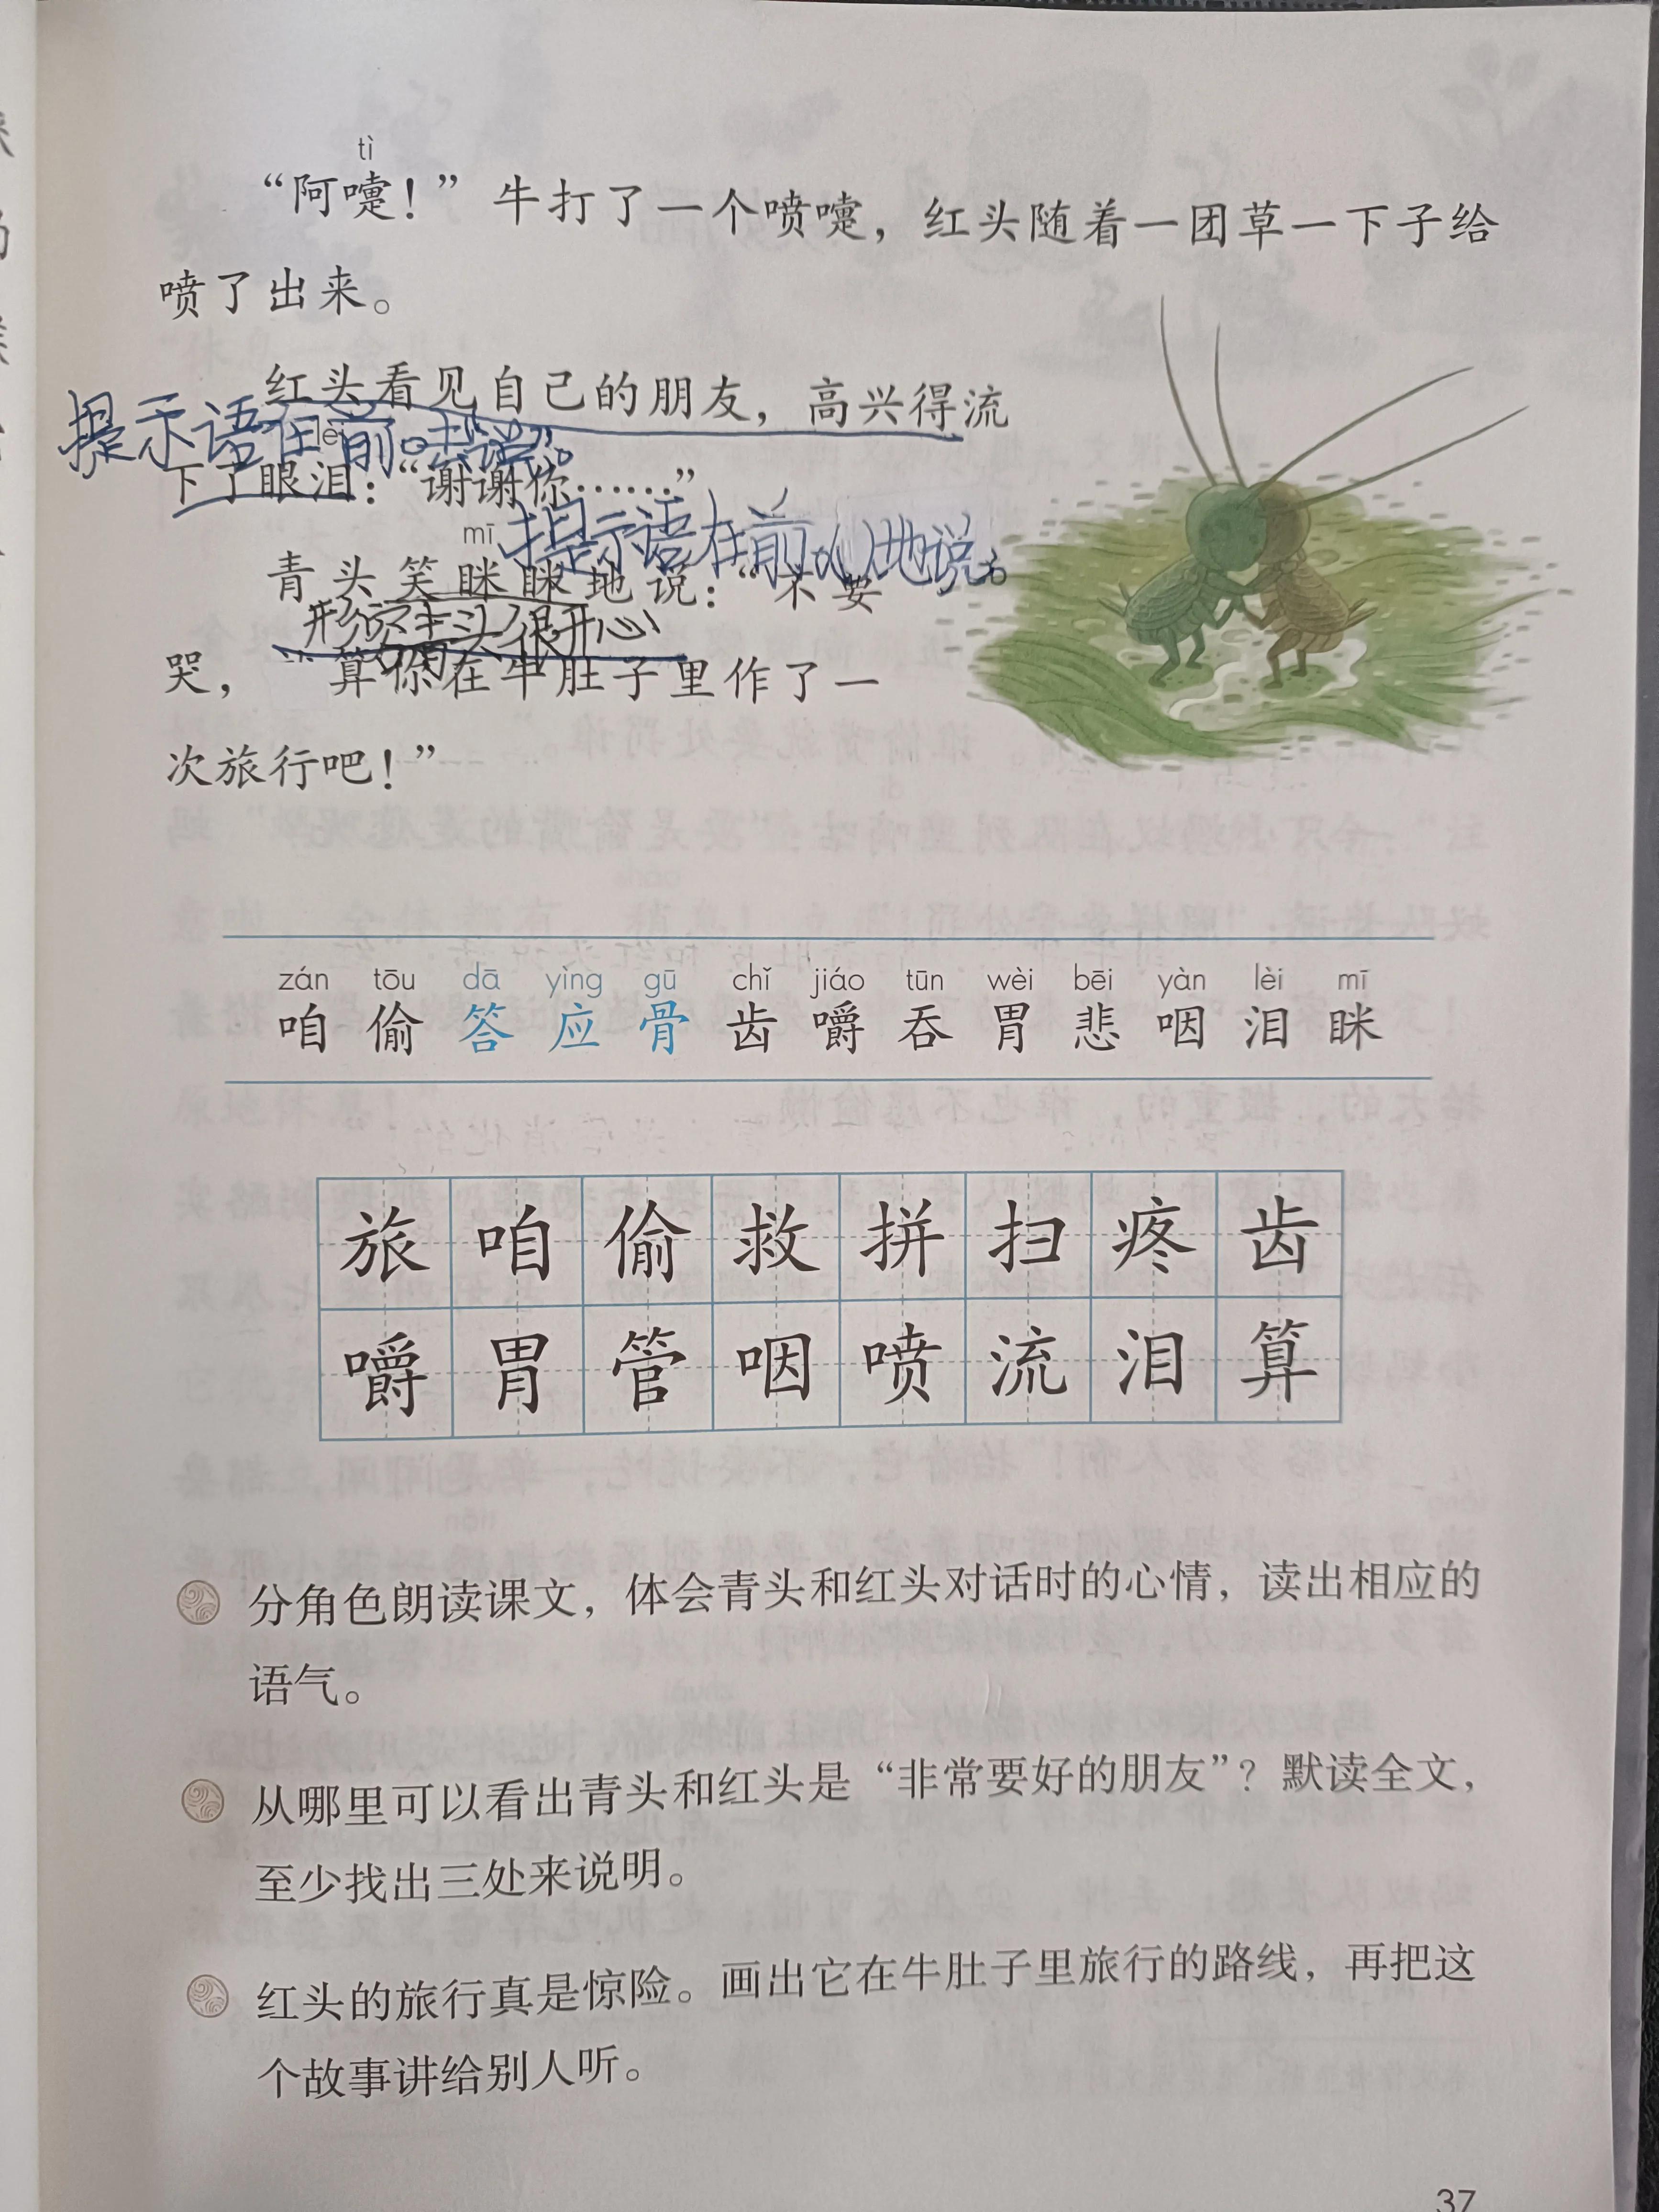 tì
“阿嚏！”牛打了一个喷嚏，红头随着一团草一下子给
喷了出来。
红头看见自己的朋友，高兴得流
提示语在前。去“说”。
lèi
下了眼泪：“谢谢你……”
提示语在前。( )地说。
mī
青头笑眯眯地说：“不要
形容青头很开心
哭，算你在牛肚子里作了一
次旅行吧！”
zán tōu dā yìng gū chǐ jiáo tūn wèi bēi yàn lèi mī
咱 偷 答 应 骨 齿 嚼 吞 胃 悲 咽 泪 眯
旅 咱 偷 救 拼 扫 疼 齿
嚼 胃 管 咽 喷 流 泪 算
分角色朗读课文，体会青头和红头对话时的心情，读出相应的
语气。
从哪里可以看出青头和红头是“非常要好的朋友”？默读全文，
至少找出三处来说明。
红头的旅行真是惊险。画出它在牛肚子里旅行的路线，再把这
个故事讲给别人听。
37